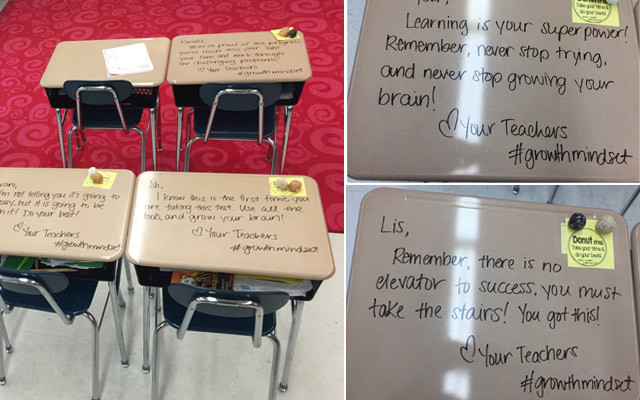 We're so proud of the progress
you've made this year. Take
your time and work through
the challenging problems!
♡ Your Teachers
#growthmindset
I'm not telling you it's going to
easy, but it is going to be
it! Do your best!
♡ Your Teachers
#growthmindset
Ish,
I know this is the first time you
are taking this test. Use all the
tools, and grow your brain!
♡ Your Teachers
#growthmindset
Take your time &
do your best!
Learning is your superpower!
Remember, never stop trying,
and never stop growing your
brain!
♡ Your Teachers
#growthmindset
Donut stress
Take your time &
do your best!
Lis,
Remember, there is no
elevator to success, you must
take the stairs! You got this!
♡ Your Teachers
#growthmindset